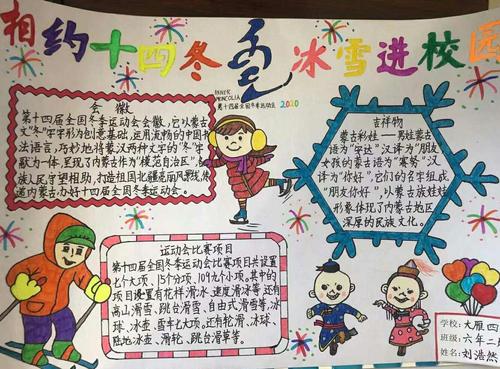 相约十四冬 冰雪进校园
INNER
MONGOLIA
第十四届全国冬季运动会 2020
会徽
第十四届全国冬季运动会会徽,它以蒙古
文"冬"字形为创意基础,运用流畅的中国书
法语言,巧妙地将蒙汉两种文字的"冬"字
融为一体,呈现了内蒙古作为"模范自治区",各
族人民守望相助,打造祖国北疆亮丽风景线,
道内蒙古,办好十四届全国冬季运动会。
吉祥物
蒙古彩娃——男娃蒙古
语为"安达"汉译为"朋友"
女孩的蒙古语为"赛努"汉
译为"你好",它们的名字组成
"朋友你好",以蒙古族娃娃
形象体现了内蒙古地区
深厚的民族文化。
运动会比赛项目
第十四届全国冬季运动会比赛项目共设置
七个大项、15个分项、109个小项。其中的
项目设置有花样滑冰、速度滑冰等还有
高山滑雪、跳台滑雪、自由式滑雪等,冰
球、冰壶、雪车七大项。还有轮滑、冰球、
陆地冰壶、滑轮、跳台滑草等。
学校:大雁四
班级:六年二
姓名:刘浩然